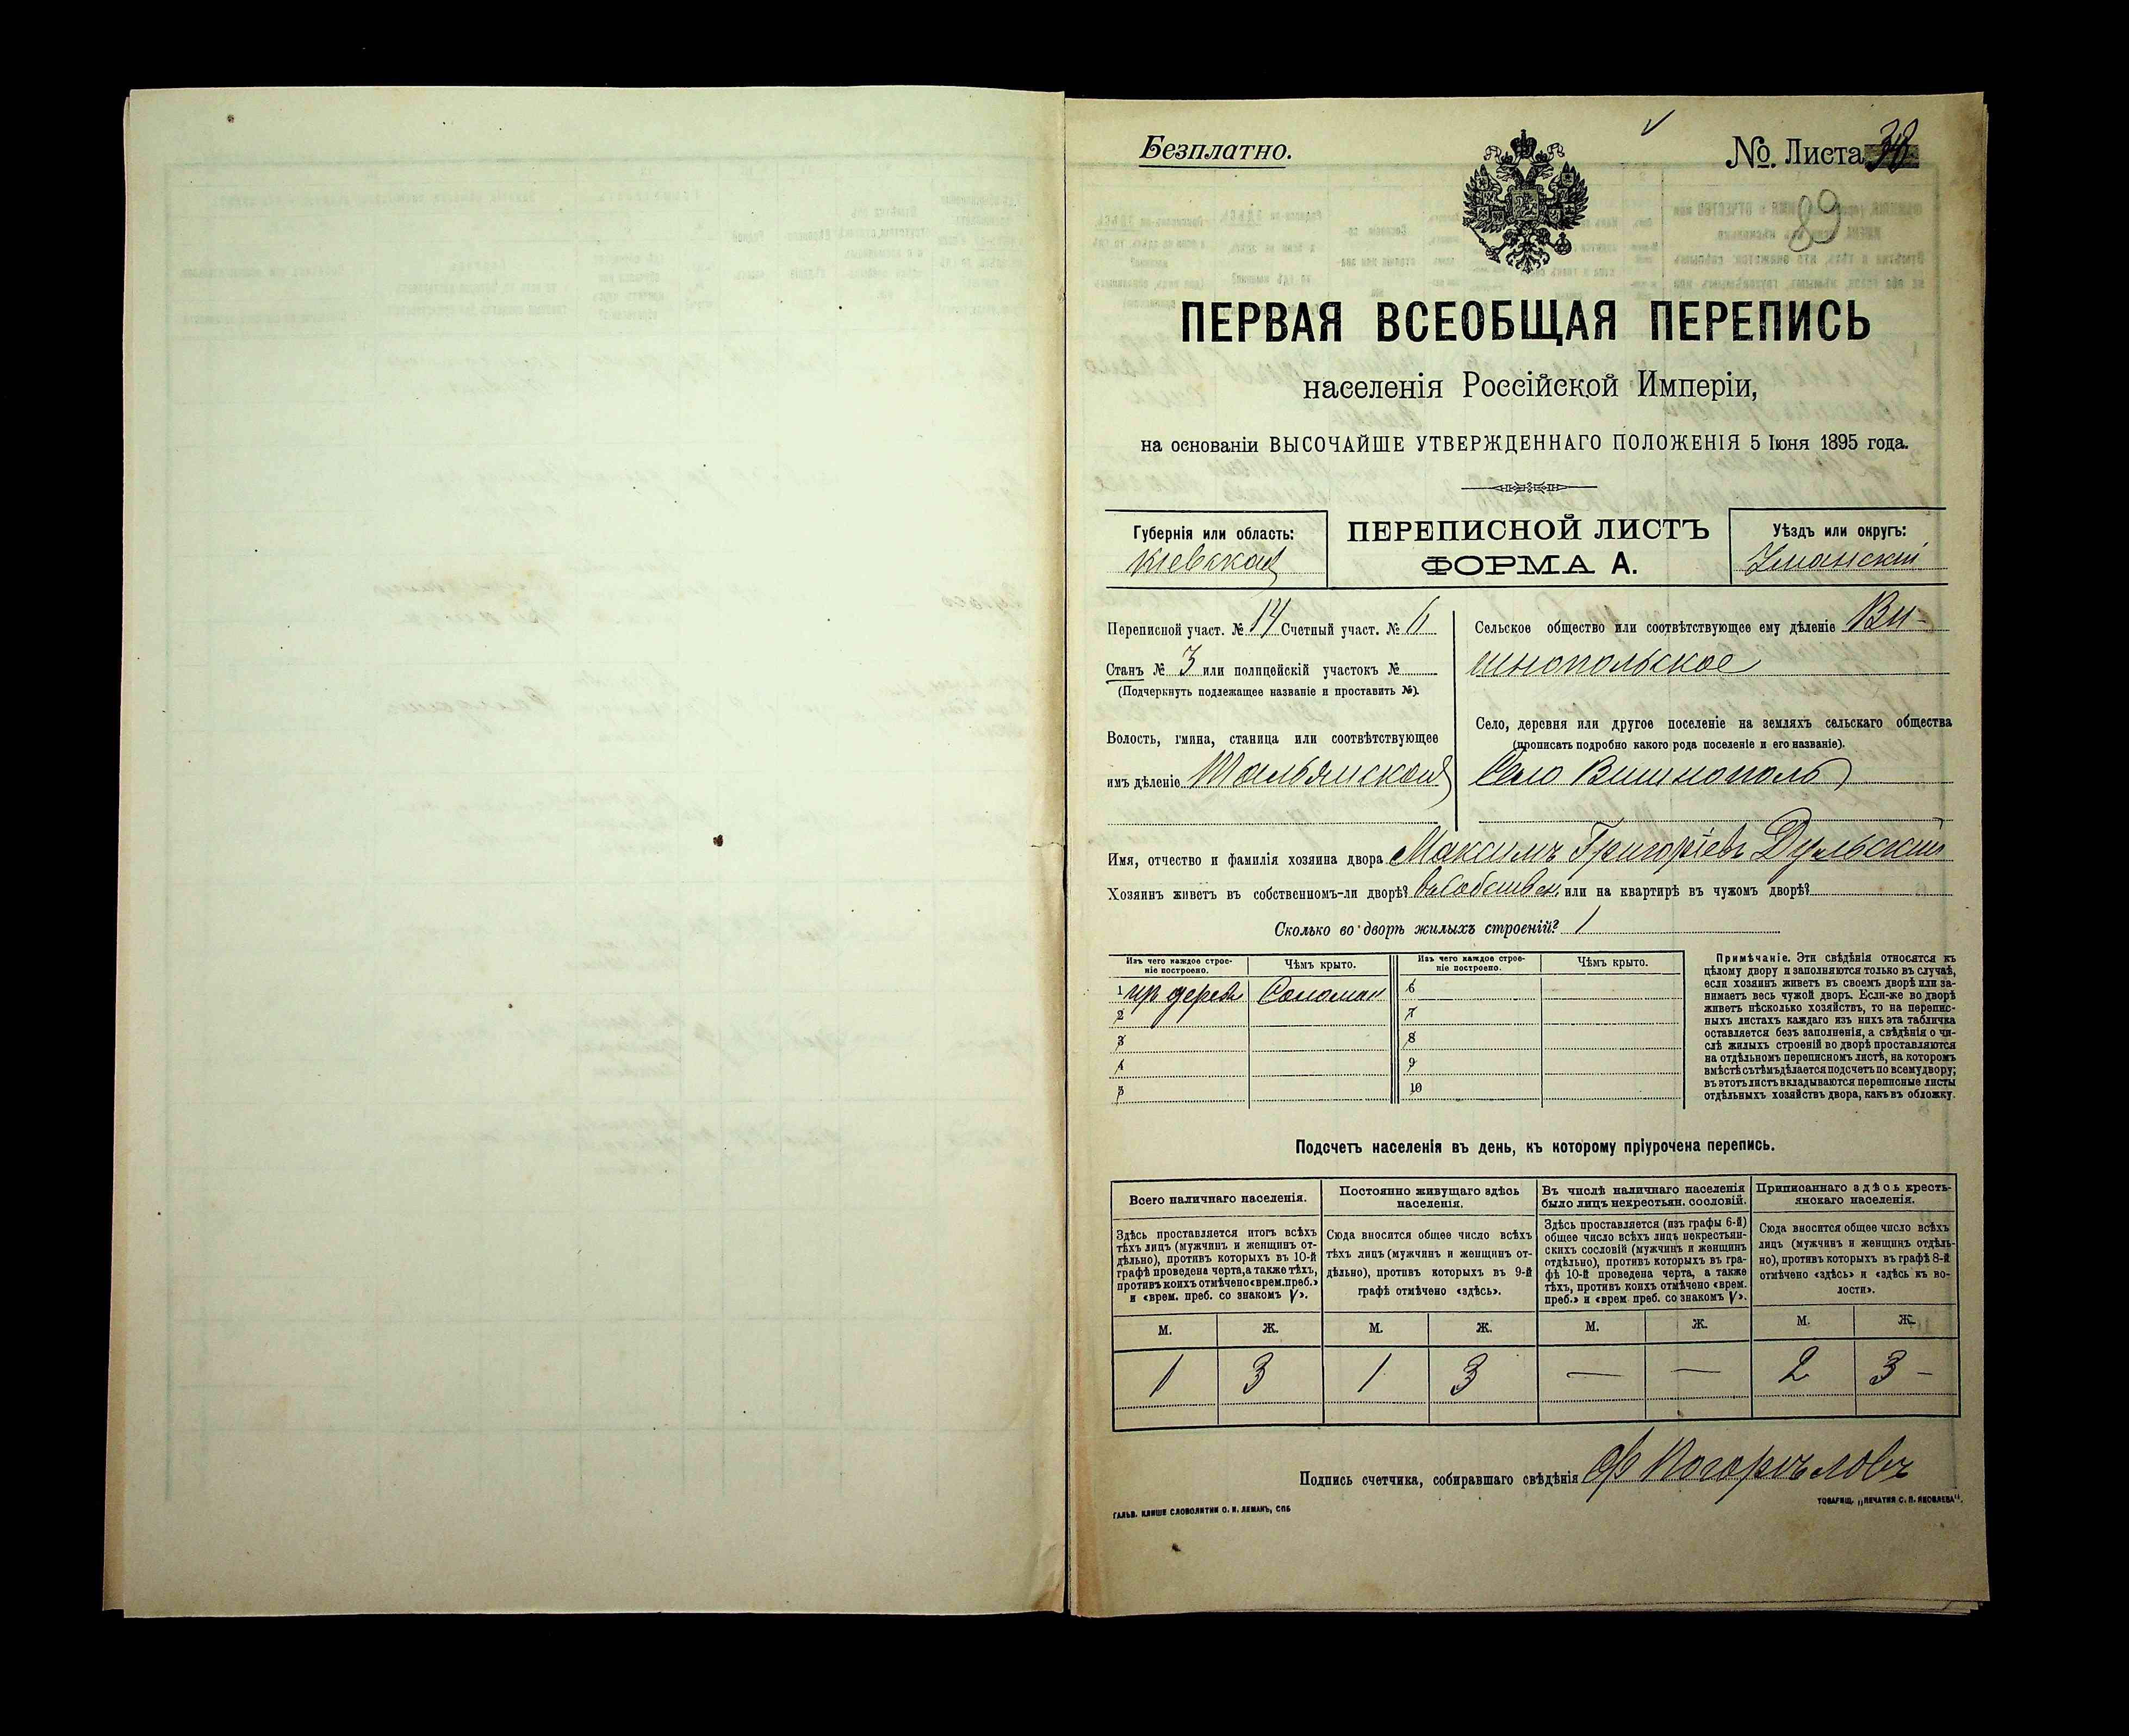 Безплатно.
№. Листа 38
89
ПЕРВАЯ ВСЕОБЩАЯ ПЕРЕПИСЬ
населенія Россійской Имперіи,
на основаніи ВЫСОЧАЙШЕ УТВЕРЖДЕННАГО ПОЛОЖЕНІЯ 5 Іюня 1895 года.
Губернія или область:
Кіевская
ПЕРЕПИСНОЙ ЛИСТЪ
ФОРМА А.
Уѣздъ или округъ:
Уманскій
Переписной участ. № 14 Счетный участ. № 6
Станъ № 3 или полицейскій участокъ №
(Подчеркнуть подлежащее названіе и проставить №).
Волость, гмина, станица или соотвѣтствующее
имъ дѣленіе Тальянская
Сельское общество или соотвѣтствующее ему дѣленіе Ви-
шнопольское
Село, деревня или другое поселеніе на земляхъ сельскаго общества
(прописать подробно какого рода поселеніе и его названіе).
Село Вишнополь
Имя, отчество и фамилія хозяина двора Максимъ Григоріевъ Дульскій
Хозяинъ живетъ въ собственномъ-ли дворѣ? въ собствен. или на квартирѣ въ чужомъ дворѣ?
Сколько во дворѣ жилыхъ строеній? 1
Изъ чего каждое строе-
ніе построено.
Чѣмъ крыто.
Изъ чего каждое строе-
ніе построено.
Чѣмъ крыто.
1 изъ дерева Соломой 6
2 7
3 8
4 9
5 10
Примѣчаніе. Эти свѣдѣнія относятся къ
цѣлому двору и заполняются только въ случаѣ,
если хозяинъ живетъ въ своемъ дворѣ или за-
нимаетъ весь чужой дворъ. Если-же во дворѣ
живетъ нѣсколько хозяйствъ, то на перепис-
ныхъ листахъ каждаго изъ нихъ эта табличка
оставляется безъ заполненія, а свѣдѣнія о чи-
слѣ жилыхъ строеній во дворѣ проставляются
на отдѣльномъ переписномъ листѣ, на которомъ
вмѣстѣ съ тѣмъ дѣлается подсчетъ по всему двору;
въ этотъ листъ вкладываются переписные листы
отдѣльныхъ хозяйствъ двора, какъ въ обложку.
Подсчетъ населенія въ день, къ которому пріурочена перепись.
Всего наличнаго населенія.
Здѣсь проставляется итогъ всѣхъ
тѣхъ лицъ (мужчинъ и женщинъ от-
дѣльно), противъ которыхъ въ 10-й
графѣ проведена черта, а также тѣхъ,
противъ коихъ отмѣчено «врем. преб.»
и «врем. преб. со знакомъ V».
Постоянно живущаго здѣсь
населенія.
Сюда вносится общее число всѣхъ
тѣхъ лицъ (мужчинъ и женщинъ от-
дѣльно), противъ которыхъ въ 9-й
графѣ отмѣчено «здѣсь».
Въ числѣ наличнаго населенія
было лицъ некрестьян. сословій.
Здѣсь проставляется (изъ графы 6-й)
общее число всѣхъ лицъ некрестьян-
скихъ сословій (мужчинъ и женщинъ
отдѣльно), противъ которыхъ въ гра-
фѣ 10-й проведена черта, а также
тѣхъ, противъ коихъ отмѣчено «врем.
преб.» и «врем преб. со знакомъ V».
Приписаннаго здѣсь кресть-
янскаго населенія.
Сюда вносится общее число всѣхъ
лицъ (мужчинъ и женщинъ отдѣль-
но), противъ которыхъ въ графѣ 8-й
отмѣчено «здѣсь» и «здѣсь къ во-
лости».
М. Ж. М. Ж. М. Ж. М. Ж.
1 3 1 3 — — 2 3 —
Подпись счетчика, собиравшаго свѣдѣнія Погорѣловъ
ГАЛЬВ. КЛИШЕ СЛОВОЛИТНИ О. И. ЛЕМАНЪ, СПБ
ТОВАРИЩ. „ПЕЧАТНЯ С. П. ЯКОВЛЕВА“.